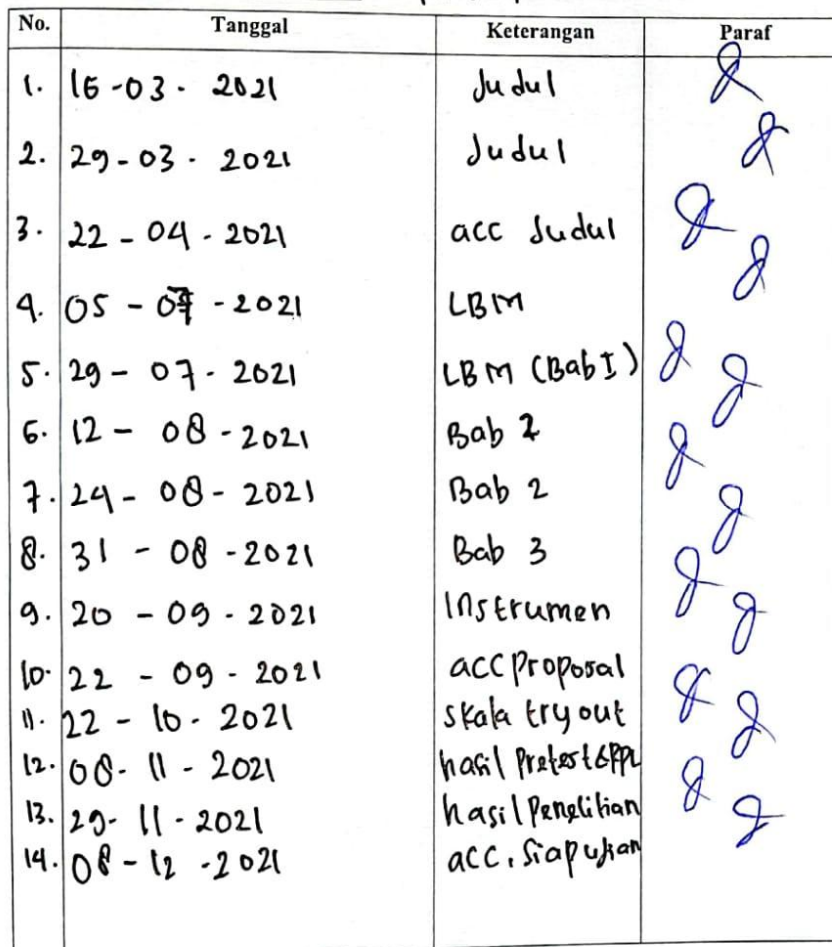 No. Tanggal Keterangan Paraf
1. 16-03-2021 Judul
2. 29-03-2021 Judul
3. 22-04-2021 acc Judul
4. 05-07-2021 LBM
5. 29-07-2021 LBM (Bab I)
6. 12-08-2021 Bab 2
7. 24-08-2021 Bab 2
8. 31-08-2021 Bab 3
9. 20-09-2021 Instrumen
10. 22-09-2021 acc Proposal
11. 22-10-2021 skala try out
12. 08-11-2021 hasil Pretest & PPL
13. 29-11-2021 hasil Penelitian
14. 08-12-2021 acc. Siap ujian